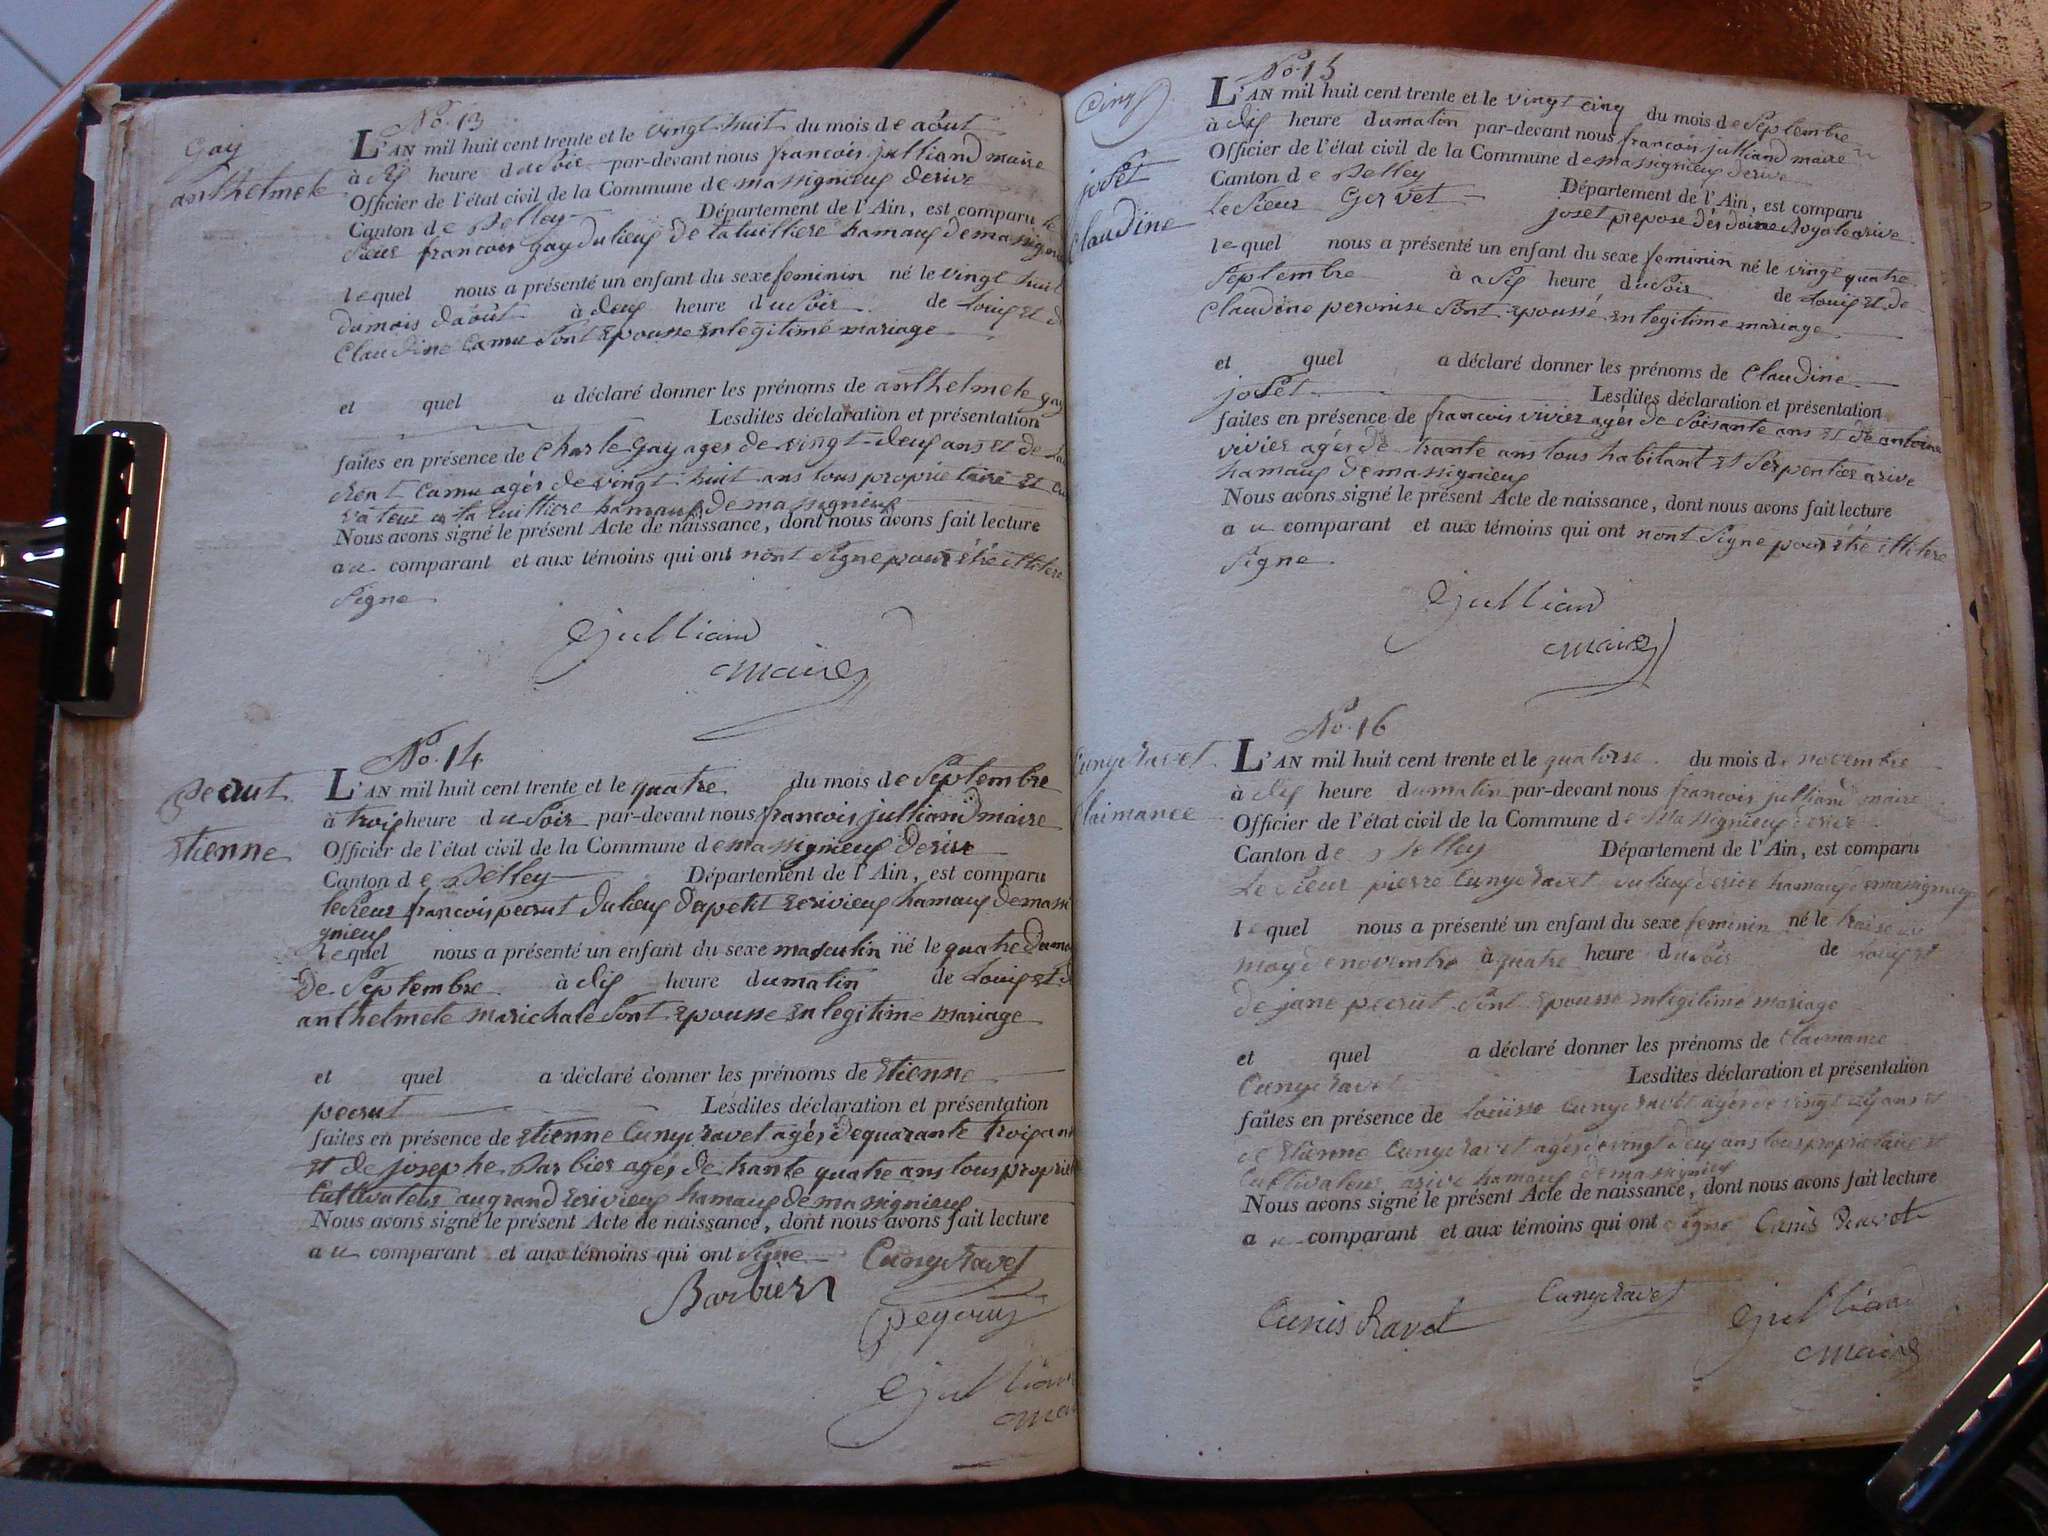 No. 13
Gay
anthelmete
L'AN mil huit cent trente et le vingt huit du mois de août
à dix heure du Soir par-devant nous francois julliand maire
Officier de l'état civil de la Commune de massignieux derive
Canton de Belley Département de l'Ain, est comparu le
Sieur francois Gay du lieux de la tuilliere hamaux de massign
lequel nous a présenté un enfant du sexe feminin né le vingt huit
du mois daout à deux heure du Soir de Louis et d
Claudine Camu Sont Epousse En legitime mariage
et quel a déclaré donner les prénoms de anthelmete gay
Lesdites déclaration et présentation
faites en présence de Charle Gay ages de vingt-deux ans et de
Camu agés de vingt huit ans tous proprietaire Et
a la tuilliere hamaux de massignieux
Nous avons signé le présent Acte de naissance, dont nous avons fait lecture
au comparant et aux témoins qui ont nont Signe pour étre illitere
Signe
Julliand
Maire
No. 14
pecrut
Etienne
L'AN mil huit cent trente et le quatre du mois de Septembre
à trois heure du Soir par-devant nous francois julliand maire
Officier de l'état civil de la Commune de massignieux derive
Canton de Belley Département de l'Ain, est comparu
le Sieur francois pecrut du lieux de petit Ecrivieux hamaux de massi
gnieux
lequel nous a présenté un enfant du sexe masculin né le quatre du mo
De Septembre à dix heure du matin de Louis Et d
anthelmete marichale Sont Epousse En legitime mariage
et quel a déclaré donner les prénoms de Etienne
pecrut Lesdites déclaration et présentation
faites en présence de Etienne Cunyeravet agés de quarante trois an
Et de josephe Barbier agés de trante quatre ans tous proprie
Cultivateur au grand Ecrivieux hamaux de massignieux
Nous avons signé le présent Acte de naissance, dont nous avons fait lecture
au comparant et aux témoins qui ont Signe Cunyeravet
Barbier
Julliand
No. 15
josét
Claudine
L'AN mil huit cent trente et le vingt cinq du mois de Septembre
à dix heure du maton par-devant nous francois julliand maire
Officier de l'état civil de la Commune de massignieux derive
Canton de Belley Département de l'Ain, est comparu
le Sieur Gervet josét prepose dés doine Royale arive
lequel nous a présenté un enfant du sexe feminin né le vingt quatre
Septembre à Six heure du Soir de Louis Et de
Claudine peronise Sont Epoussé En legitime mariage
et quel a déclaré donner les prénoms de Claudine
josét Lesdites déclaration et présentation
faites en présence de francois vivier agés de Soisante ans Et de antoine
vivier agés de trante ans tous habitant Et Serpentier arive
hamaux de massignieux
Nous avons signé le présent Acte de naissance, dont nous avons fait lecture
au comparant et aux témoins qui ont nont Signe pour étre illitere
Signe
Julliand
Maire
No. 16
Cunyeravet
Claimance
L'AN mil huit cent trente et le quatorse du mois de novembre
à dix heure du matin par-devant nous francois julliand maire
Officier de l'état civil de la Commune de Massignieux derive
Canton de Belley Département de l'Ain, est comparu
Le Sieur pierre Cunyeravet du lieux derive hamaux de massignieux
lequel nous a présenté un enfant du sexe feminin né le traise du
moy de novembre à quatre heure du Soir de Louis Et
de jane pecrut Sont Epousse En legitime mariage
et quel a déclaré donner les prénoms de Claimance
Cunyeravet Lesdites déclaration et présentation
faites en présence de Louisse Cunyeravet agés de vingt ans Et
de Etienne Cunyeravet agés de vingt deux ans tous proprietaire Et
Cultivateur arive hamaux de massignieux
Nous avons signé le présent Acte de naissance, dont nous avons fait lecture
au comparant et aux témoins qui ont Signe Cunis Ravet
Cunis Ravet
Cunyeravet
Julliand
Maire